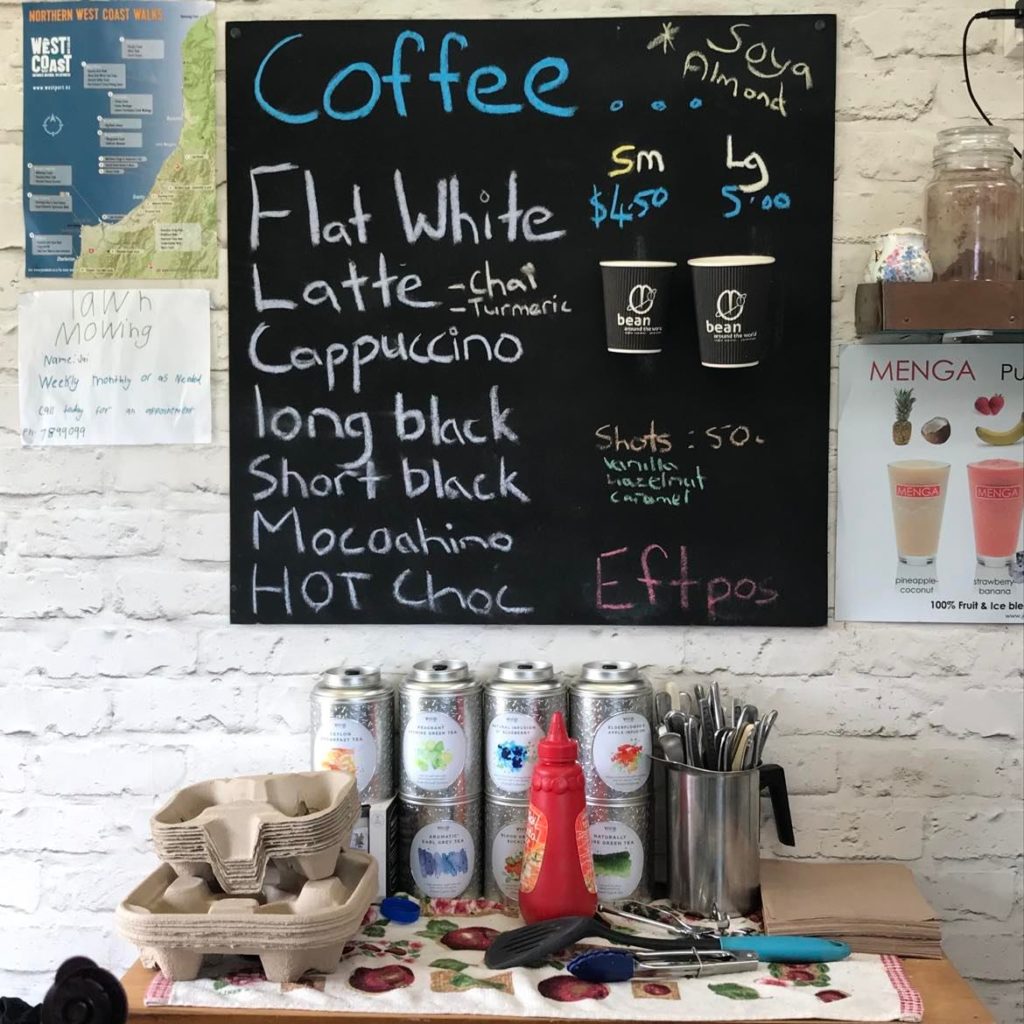 NORTHERN WEST COAST WALKS
WEST
COAST
www.westport.nz
lawn
Mowing
Name: Jai
Weekly monthly or as Needed
call today for an appointment
Ph- 7899099
Coffee . . .
* Soya
Almond
Sm Lg
$4.50 5.00
Flat White
Latte - Chai
- Turmeric
Cappuccino
long black
Short black
Mocoahino
HOT Choc
bean
around the world
bean
around the world
Shots : 50.
Vanilla
Hazelnut
Caramel
Eftpos
MENGA Pu
MENGA
MENGA
pineapple-
coconut
strawberry-
banana
100% Fruit & Ice ble
CEYLON
BREAKFAST TEA
FRAGRANT
JASMINE GREEN TEA
NATURAL INFUSION
OF BLUEBERRY
ELDERFLOWER &
APPLE INFUSION
AROMATIC
EARL GREY TEA
NATURALLY
FINE GREEN TEA